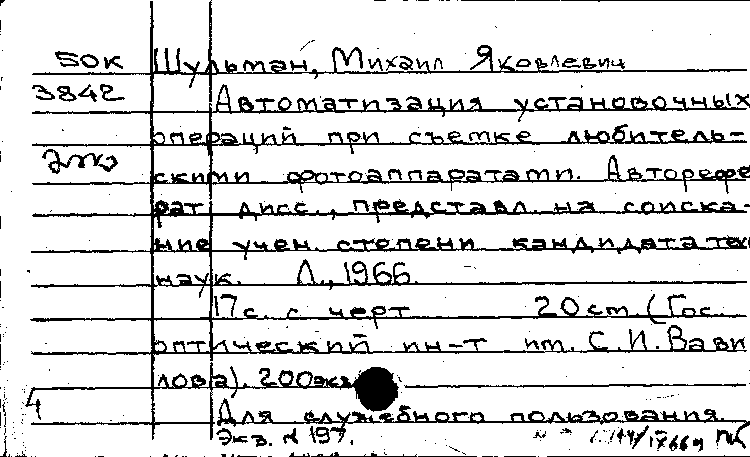 БОК Шульман, Михаил Яковлевич
3842 Автоматизация установочных
операций при съемке любитель-
скими фотоаппаратами. Авторефе
рат дисс., представл. на соиска-
ние учен. степени кандидата тех
наук. Л., 1966.
17 с. с черт 20 см. (Гос.
оптический ин-т им. С.И. Вави
лова). 200 экз
4 Для служебного пользования.
Экз. № 197.